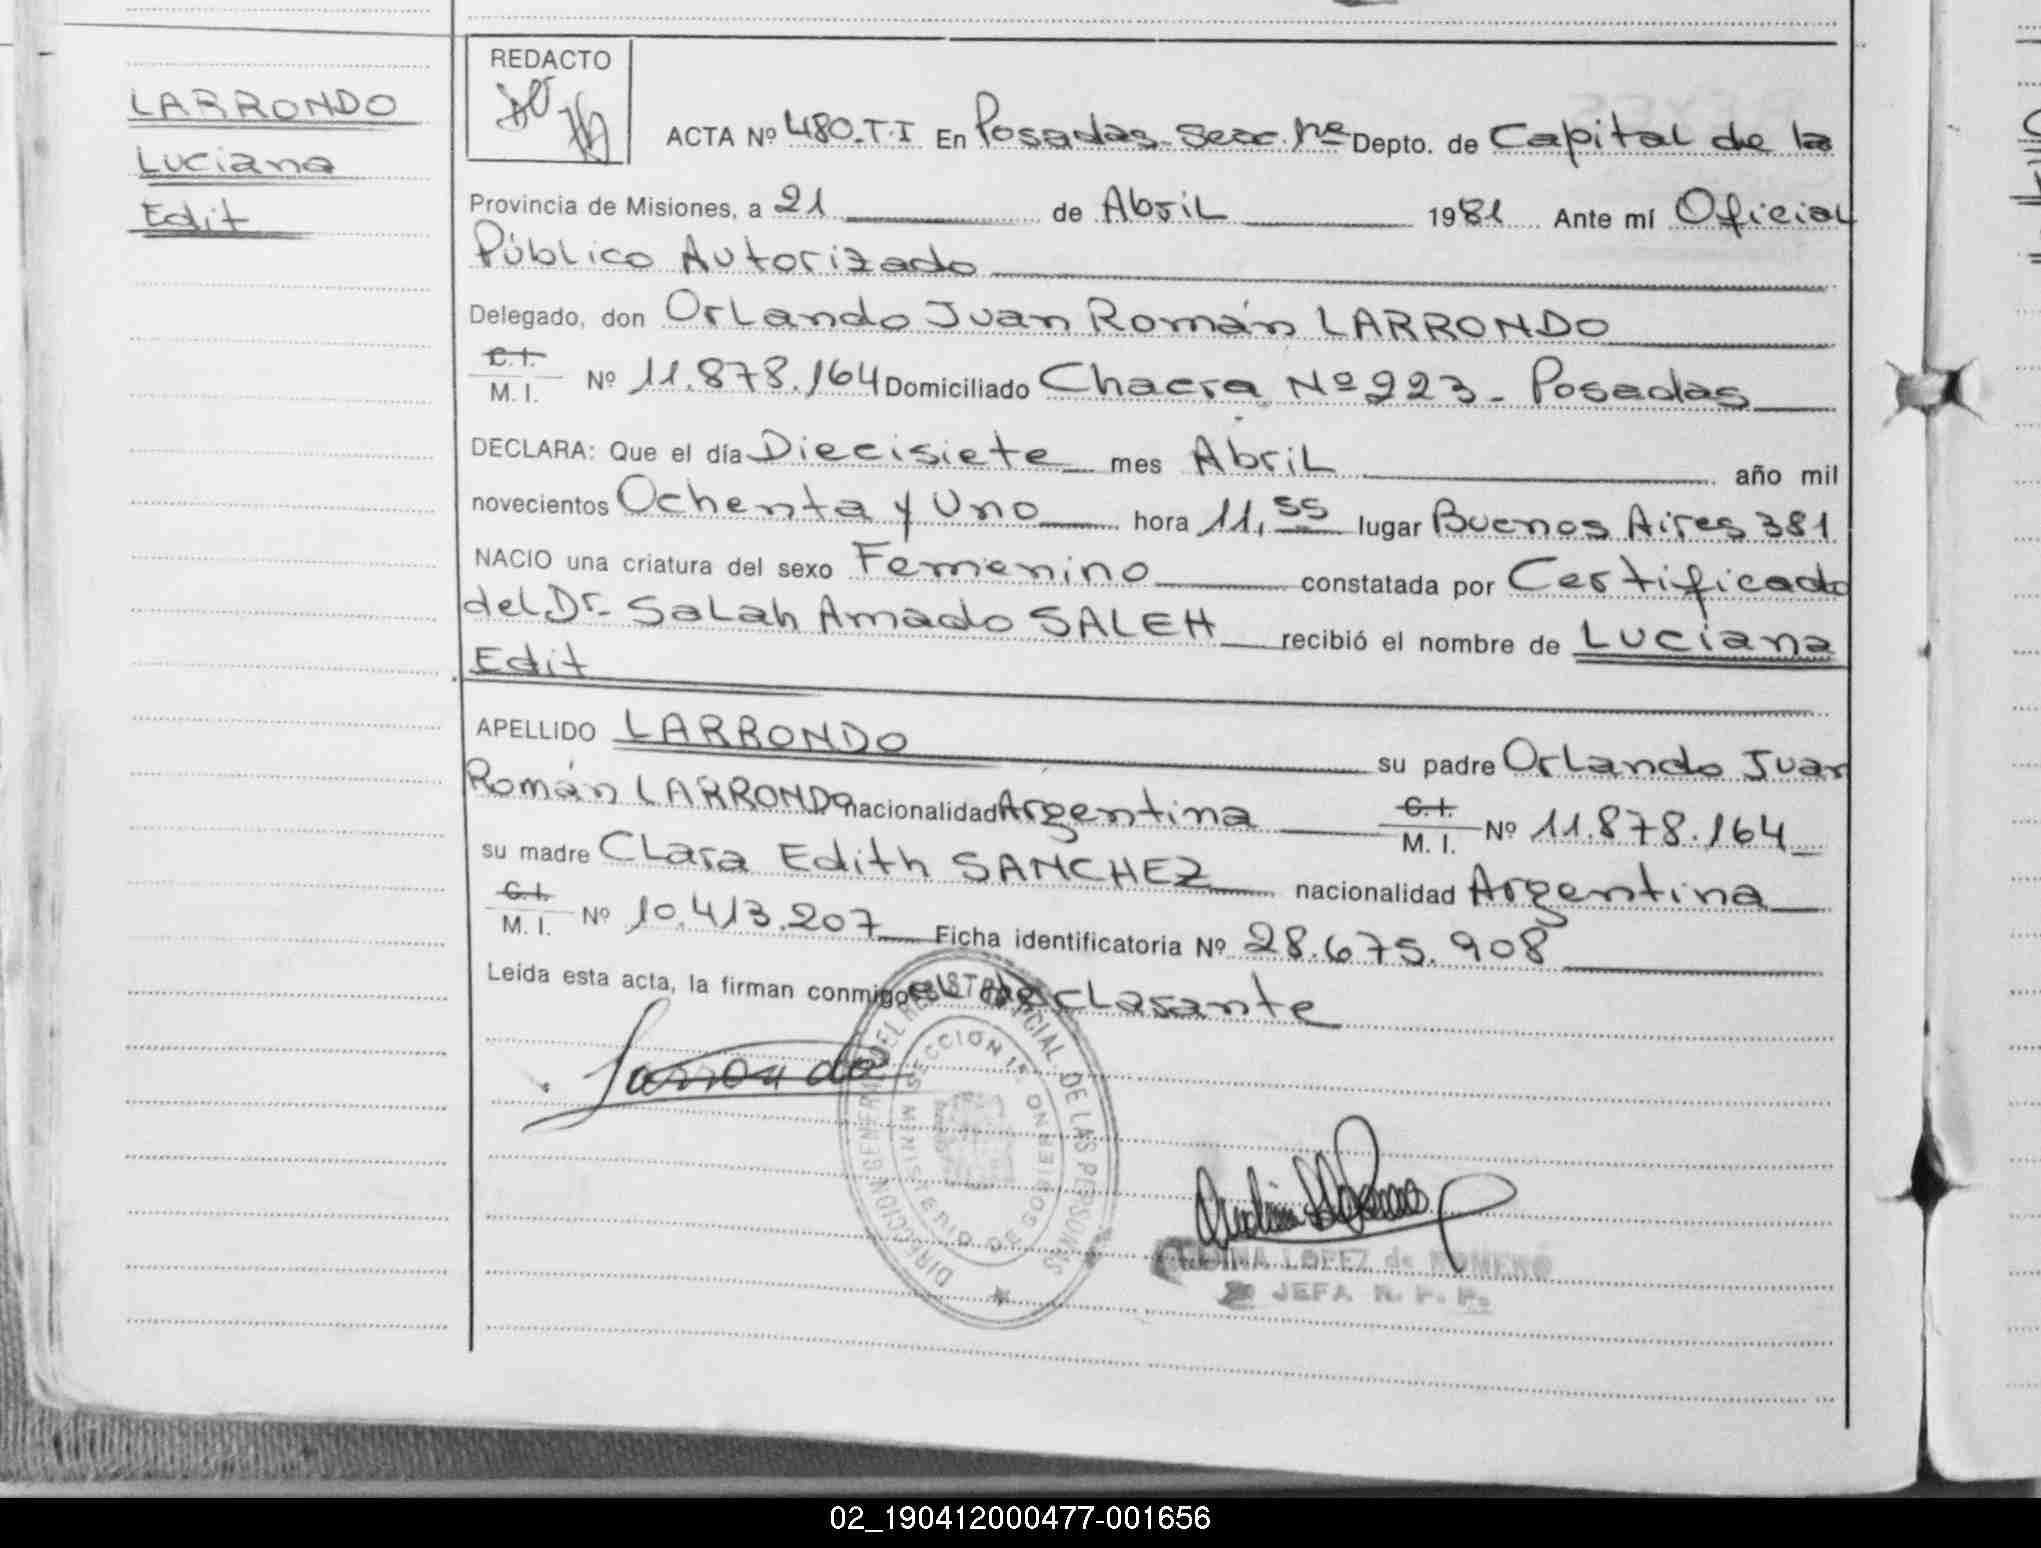 LARRONDO
Luciana
Edit
REDACTO
ACTA Nº 480.T.I En Posadas-Secc.1ª Depto. de Capital de la
Provincia de Misiones, a 21 de Abril 1981 Ante mí Oficial
Público Autorizado
Delegado, don Orlando Juan Román LARRONDO
C.I.
M. I. Nº 11.878.164 Domiciliado Chacra Nº 223- Posadas
DECLARA: Que el día Diecisiete mes Abril año mil
novecientos Ochenta y Uno hora 11,55 lugar Buenos Aires 381
NACIO una criatura del sexo Femenino constatada por Certificado
del Dr. Salah Amado SALEH recibió el nombre de Luciana
Edit
APELLIDO LARRONDO su padre Orlando Juan
Román LARRONDO nacionalidad Argentina C.I.
M. I. Nº 11.878.164
su madre Clara Edith SANCHEZ nacionalidad Argentina
C.I.
M. I. Nº 10.413.207 Ficha identificatoria Nº 28.675.908
Leida esta acta, la firman conmigo el declarante
Larrondo
DIRECCION GENERAL DEL REGISTRO PROVINCIAL DE LAS PERSONAS
SECCION 1ª
MINISTERIO DE GOBIERNO
LOPEZ de ROMERO
JEFA R. P. P.
02_190412000477-001656